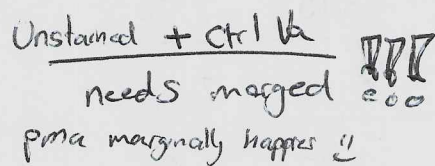 Unstained + Ctrl Va
needs merged !!!
pma marginally happier :)